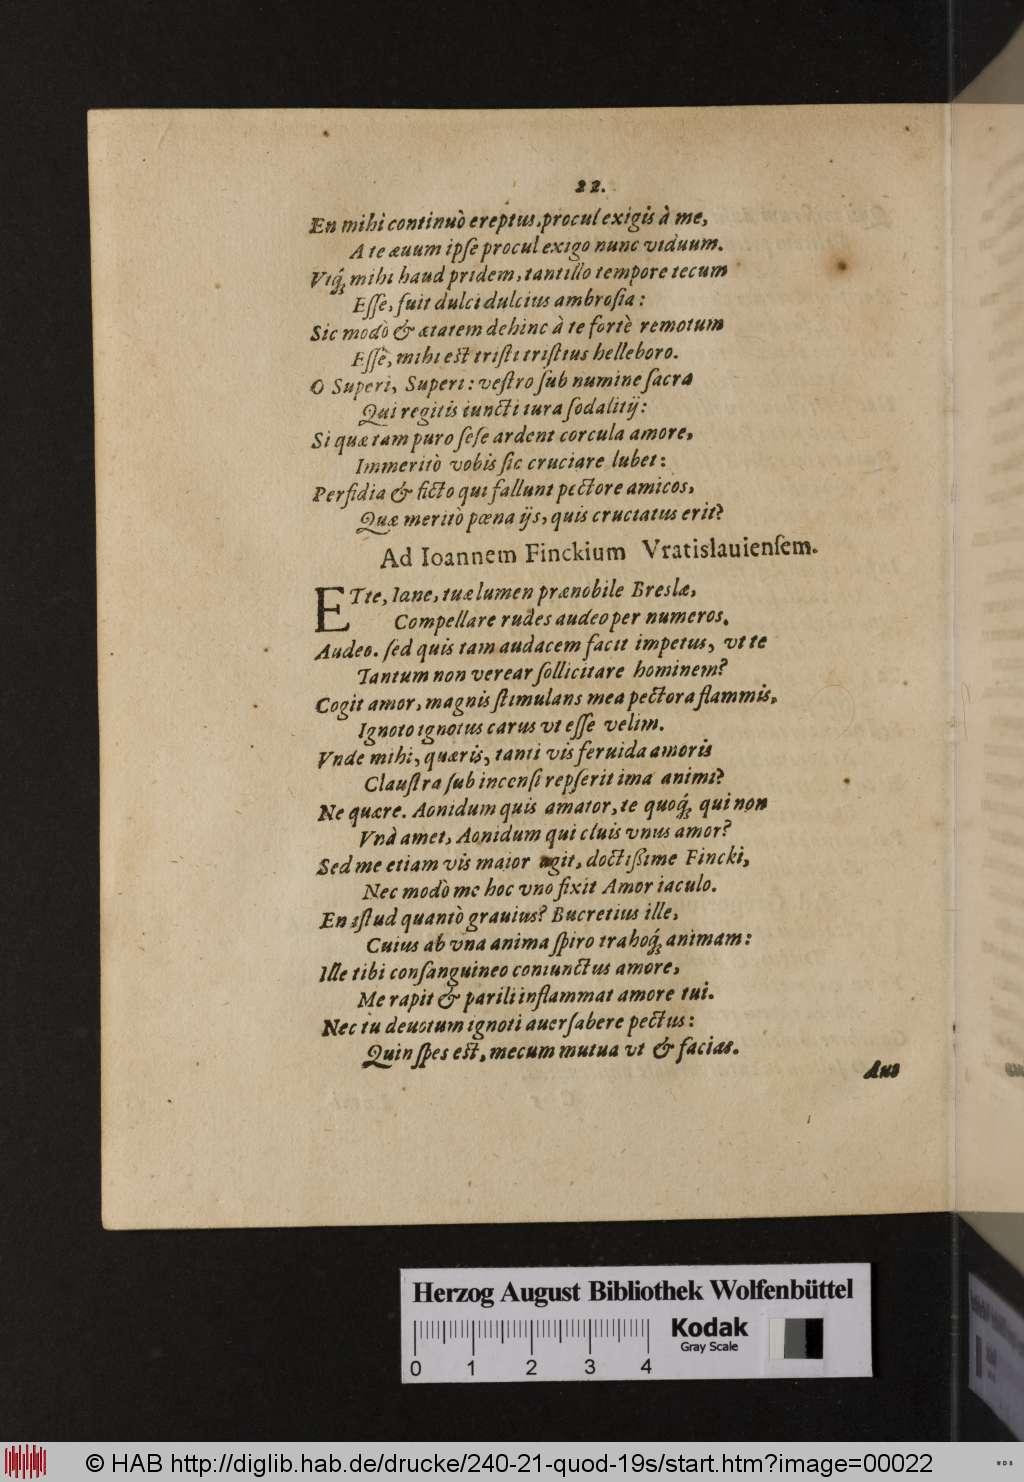 22.
En mihi continuò ereptus, procul exigis à me,
A te æuum ipse procul exigo nunc viduum.
Vtq́; mihi haud pridem, tantillo tempore tecum
Esse, fuit dulci dulcius ambrosia:
Sic modò & ætatem dehinc à te fortè remotum
Essè, mihi est tristi tristius helleboro.
O Superi, Superi: vestro sub numine sacra
Qui regitis iuncti iura sodalitij:
Si quæ tam puro sese ardent corcula amore,
Immeritò vobis sic cruciare lubet:
Perfidia & ficto qui fallunt pectore amicos,
Quæ meritò pœna ijs, quis cruciatus erit?
Ad Ioannem Finckium Vratislauiensem.
ETte, Iane, tuæ lumen prænobile Breslæ,
Compellare rudes audeo per numeros.
Audeo. sed quis tam audacem facit impetus, vt te
Tantum non verear sollicitare hominem?
Cogit amor, magnis stimulans mea pectora flammis,
Ignoto ignotus carus vt esse velim.
Vnde mihi, quæris, tanti vis feruida amoris
Claustra sub incensi repserit ima animi?
Ne quære. Aonidum quis amator, te quoq́; qui non
Vnà amet, Aonidum qui cluis vnus amor?
Sed me etiam vis maior agit, doctißime Fincki,
Nec modò me hoc vno fixit Amor iaculo.
En istud quantò grauius? Bucretius ille,
Cuius ab vna anima spiro trahoq́; animam:
Ille tibi consanguineo coniunctus amore,
Me rapit & parili inflammat amore tui.
Nec tu deuotum ignoti auersabere pectus:
Quin spes est, mecum mutua vt & facias.
Aus
Herzog August Bibliothek Wolfenbüttel
Kodak
Gray Scale
0 1 2 3 4
© HAB http://diglib.hab.de/drucke/240-21-quod-19s/start.htm?image=00022